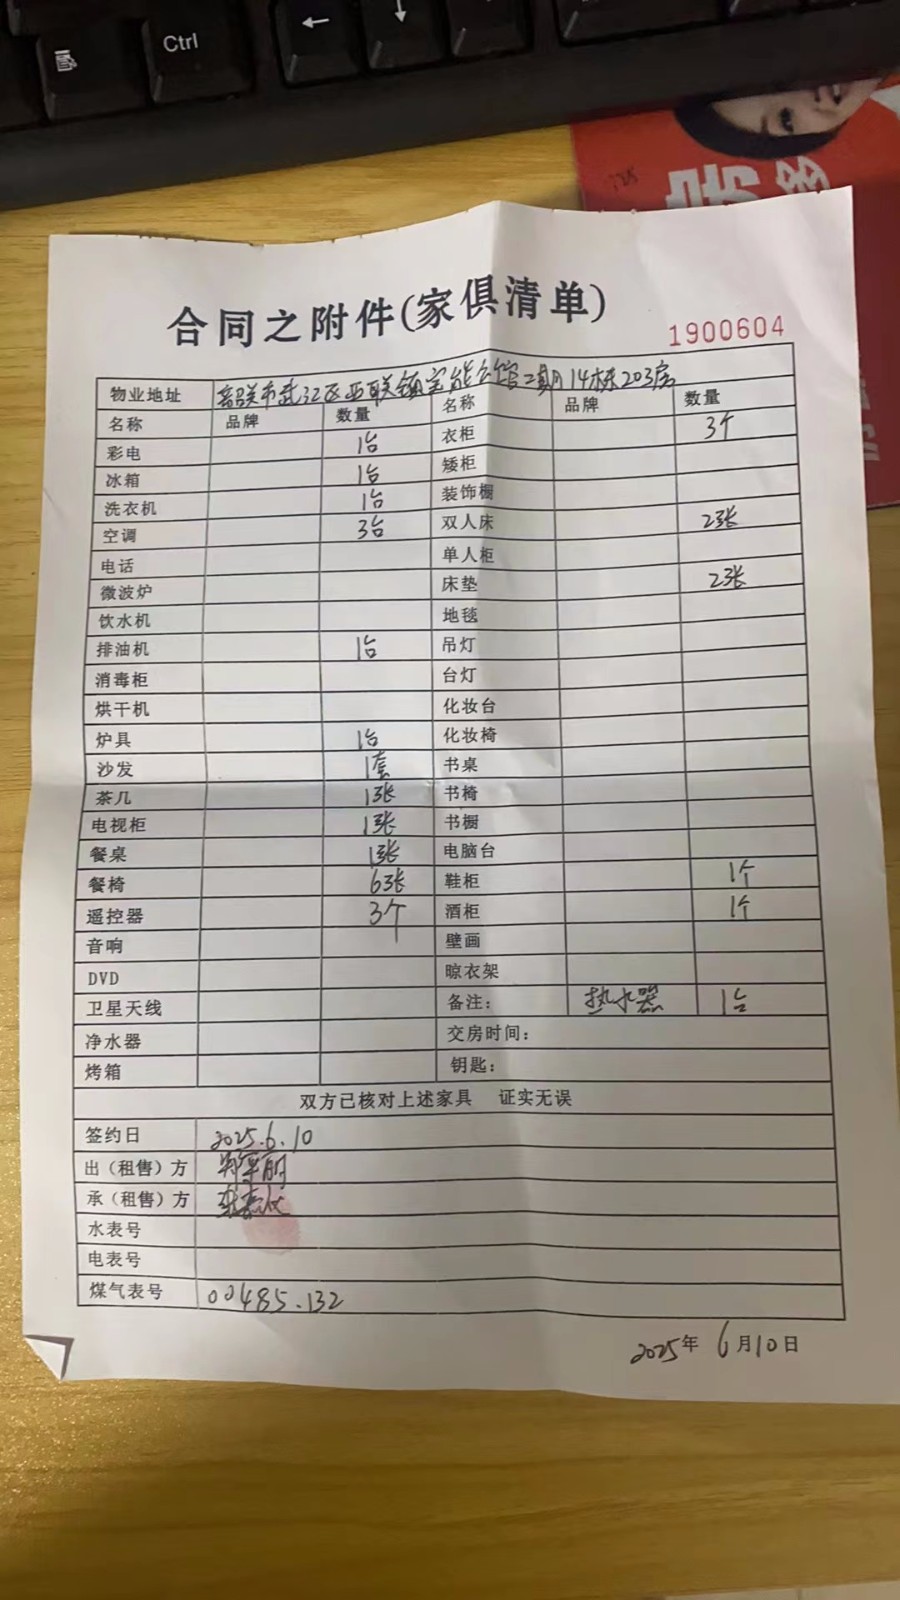 Ctrl
合同之附件(家俱清单)
1900604
物业地址 韶关市武江区西联镇宝能公馆二期14栋203房
名称 品牌 数量 名称 品牌 数量
彩电 1台 衣柜 3个
冰箱 1台 矮柜
洗衣机 1台 装饰橱
空调 3台 双人床 2张
电话 单人柜
微波炉 床垫 2张
饮水机 地毯
排油机 1台 吊灯
消毒柜 台灯
烘干机 化妆台
炉具 1台 化妆椅
沙发 1套 书桌
茶几 1张 书椅
电视柜 1张 书橱
餐桌 1张 电脑台
餐椅 6张 鞋柜 1个
遥控器 3个 酒柜 1个
音响 壁画
DVD 晾衣架
卫星天线 备注： 热水器 1台
净水器 交房时间：
烤箱 钥匙：
双方已核对上述家具 证实无误
签约日 2025.6.10
出（租售）方
承（租售）方
水表号
电表号
煤气表号 00485.132
2025年 6月10日